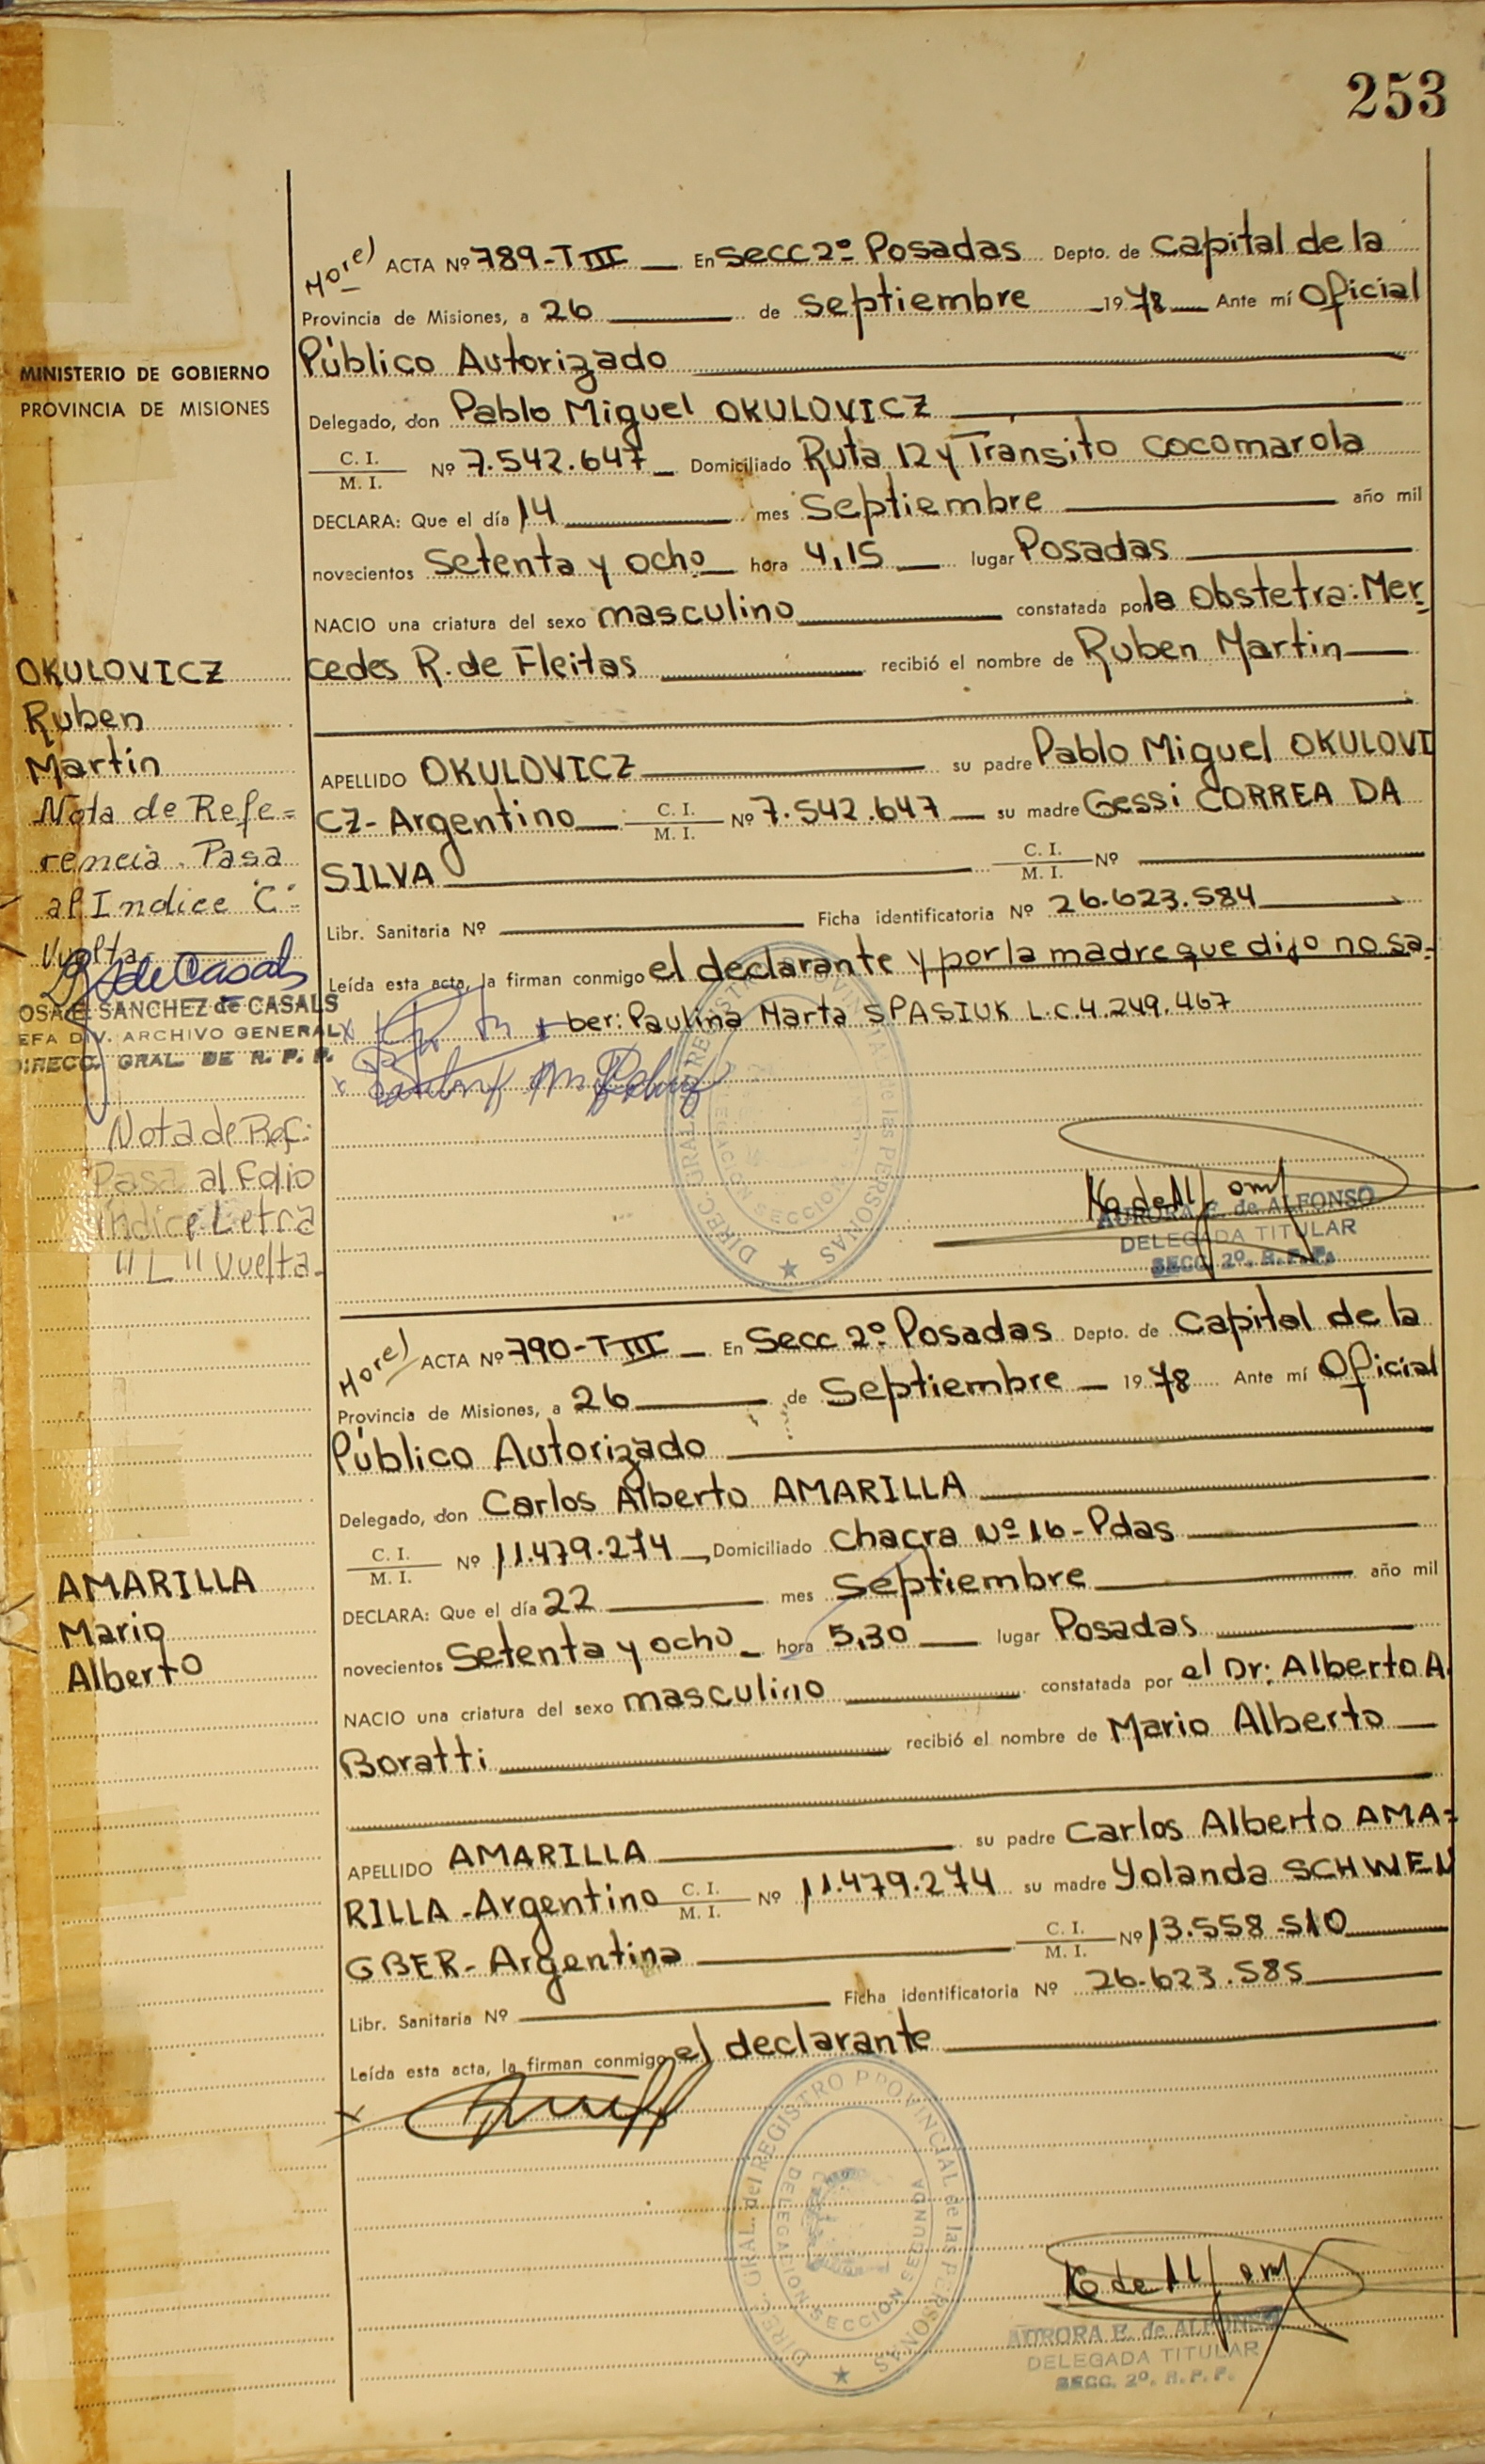 253
MINISTERIO DE GOBIERNO
PROVINCIA DE MISIONES
ACTA Nº 789-TIII En Secc 2º Posadas Depto. de Capital de la
Provincia de Misiones, a 26 de Septiembre 1978 Ante mí Oficial
Público Autorizado
Delegado, don Pablo Miguel OKULOVICZ
C. I.
M. I. Nº 7.542.647 Domiciliado Ruta 12 y Transito Cocomarola
DECLARA: Que el día 14 mes Septiembre año mil
novecientos Setenta y ocho hora 4,15 lugar Posadas
NACIO una criatura del sexo masculino constatada por la Obstetra: Mer
cedes R. de Fleitas recibió el nombre de Ruben Martin
APELLIDO OKULOVICZ su padre Pablo Miguel OKULOVI
CZ- Argentino C. I.
M. I. Nº 7.542.647 su madre Gessi CORREA DA
SILVA C. I.
M. I. Nº
Libr. Sanitaria Nº Ficha identificatoria Nº 26.623.584
Leída esta acta, la firman conmigo el declarante y por la madre que dijo no sa-
ber: Paulina Marta SPASIUK L.C. 4.249.467
OKULOVICZ
Ruben
Martin
Nota de Refe=
rencia. Pasa
al Indice "C"
Vuelta
de Casals
OSA E. SANCHEZ de CASALS
EFA DIV. ARCHIVO GENERAL
DIRECC. GRAL. DE R. P. P.
Nota de Ref:
Pasa al Folio
Indice Letra
"L" vuelta.
DIREC. GRAL. del REGISTRO PROVINCIAL de las PERSONAS
AURORA E. de ALFONSO
DELEGADA TITULAR
SECC. 2º. R.P.P.
ACTA Nº 790-TIII En Secc 2º Posadas Depto. de Capital de la
Provincia de Misiones, a 26 de Septiembre 1978 Ante mí Oficial
Público Autorizado
Delegado, don Carlos Alberto AMARILLA
C. I.
M. I. Nº 11.479.274 Domiciliado Chacra Nº 16-Pdas
DECLARA: Que el día 22 mes Septiembre año mil
novecientos Setenta y ocho hora 5,30 lugar Posadas
NACIO una criatura del sexo masculino constatada por el Dr: Alberto A.
Boratti recibió el nombre de Mario Alberto
APELLIDO AMARILLA su padre Carlos Alberto AMA=
RILLA-Argentino C. I.
M. I. Nº 11.479.274 su madre Yolanda SCHWEN
GBER- Argentina C. I.
M. I. Nº 13.558.510
Libr. Sanitaria Nº Ficha identificatoria Nº 26.623.585
Leída esta acta, la firman conmigo el declarante
AMARILLA
Mario
Alberto
DIREC. GRAL. del REGISTRO PROVINCIAL de las PERSONAS
DELEGACION SECCION SEGUNDA
AURORA E. de ALFONSO
DELEGADA TITULAR
SECC. 2º. R. P. P.